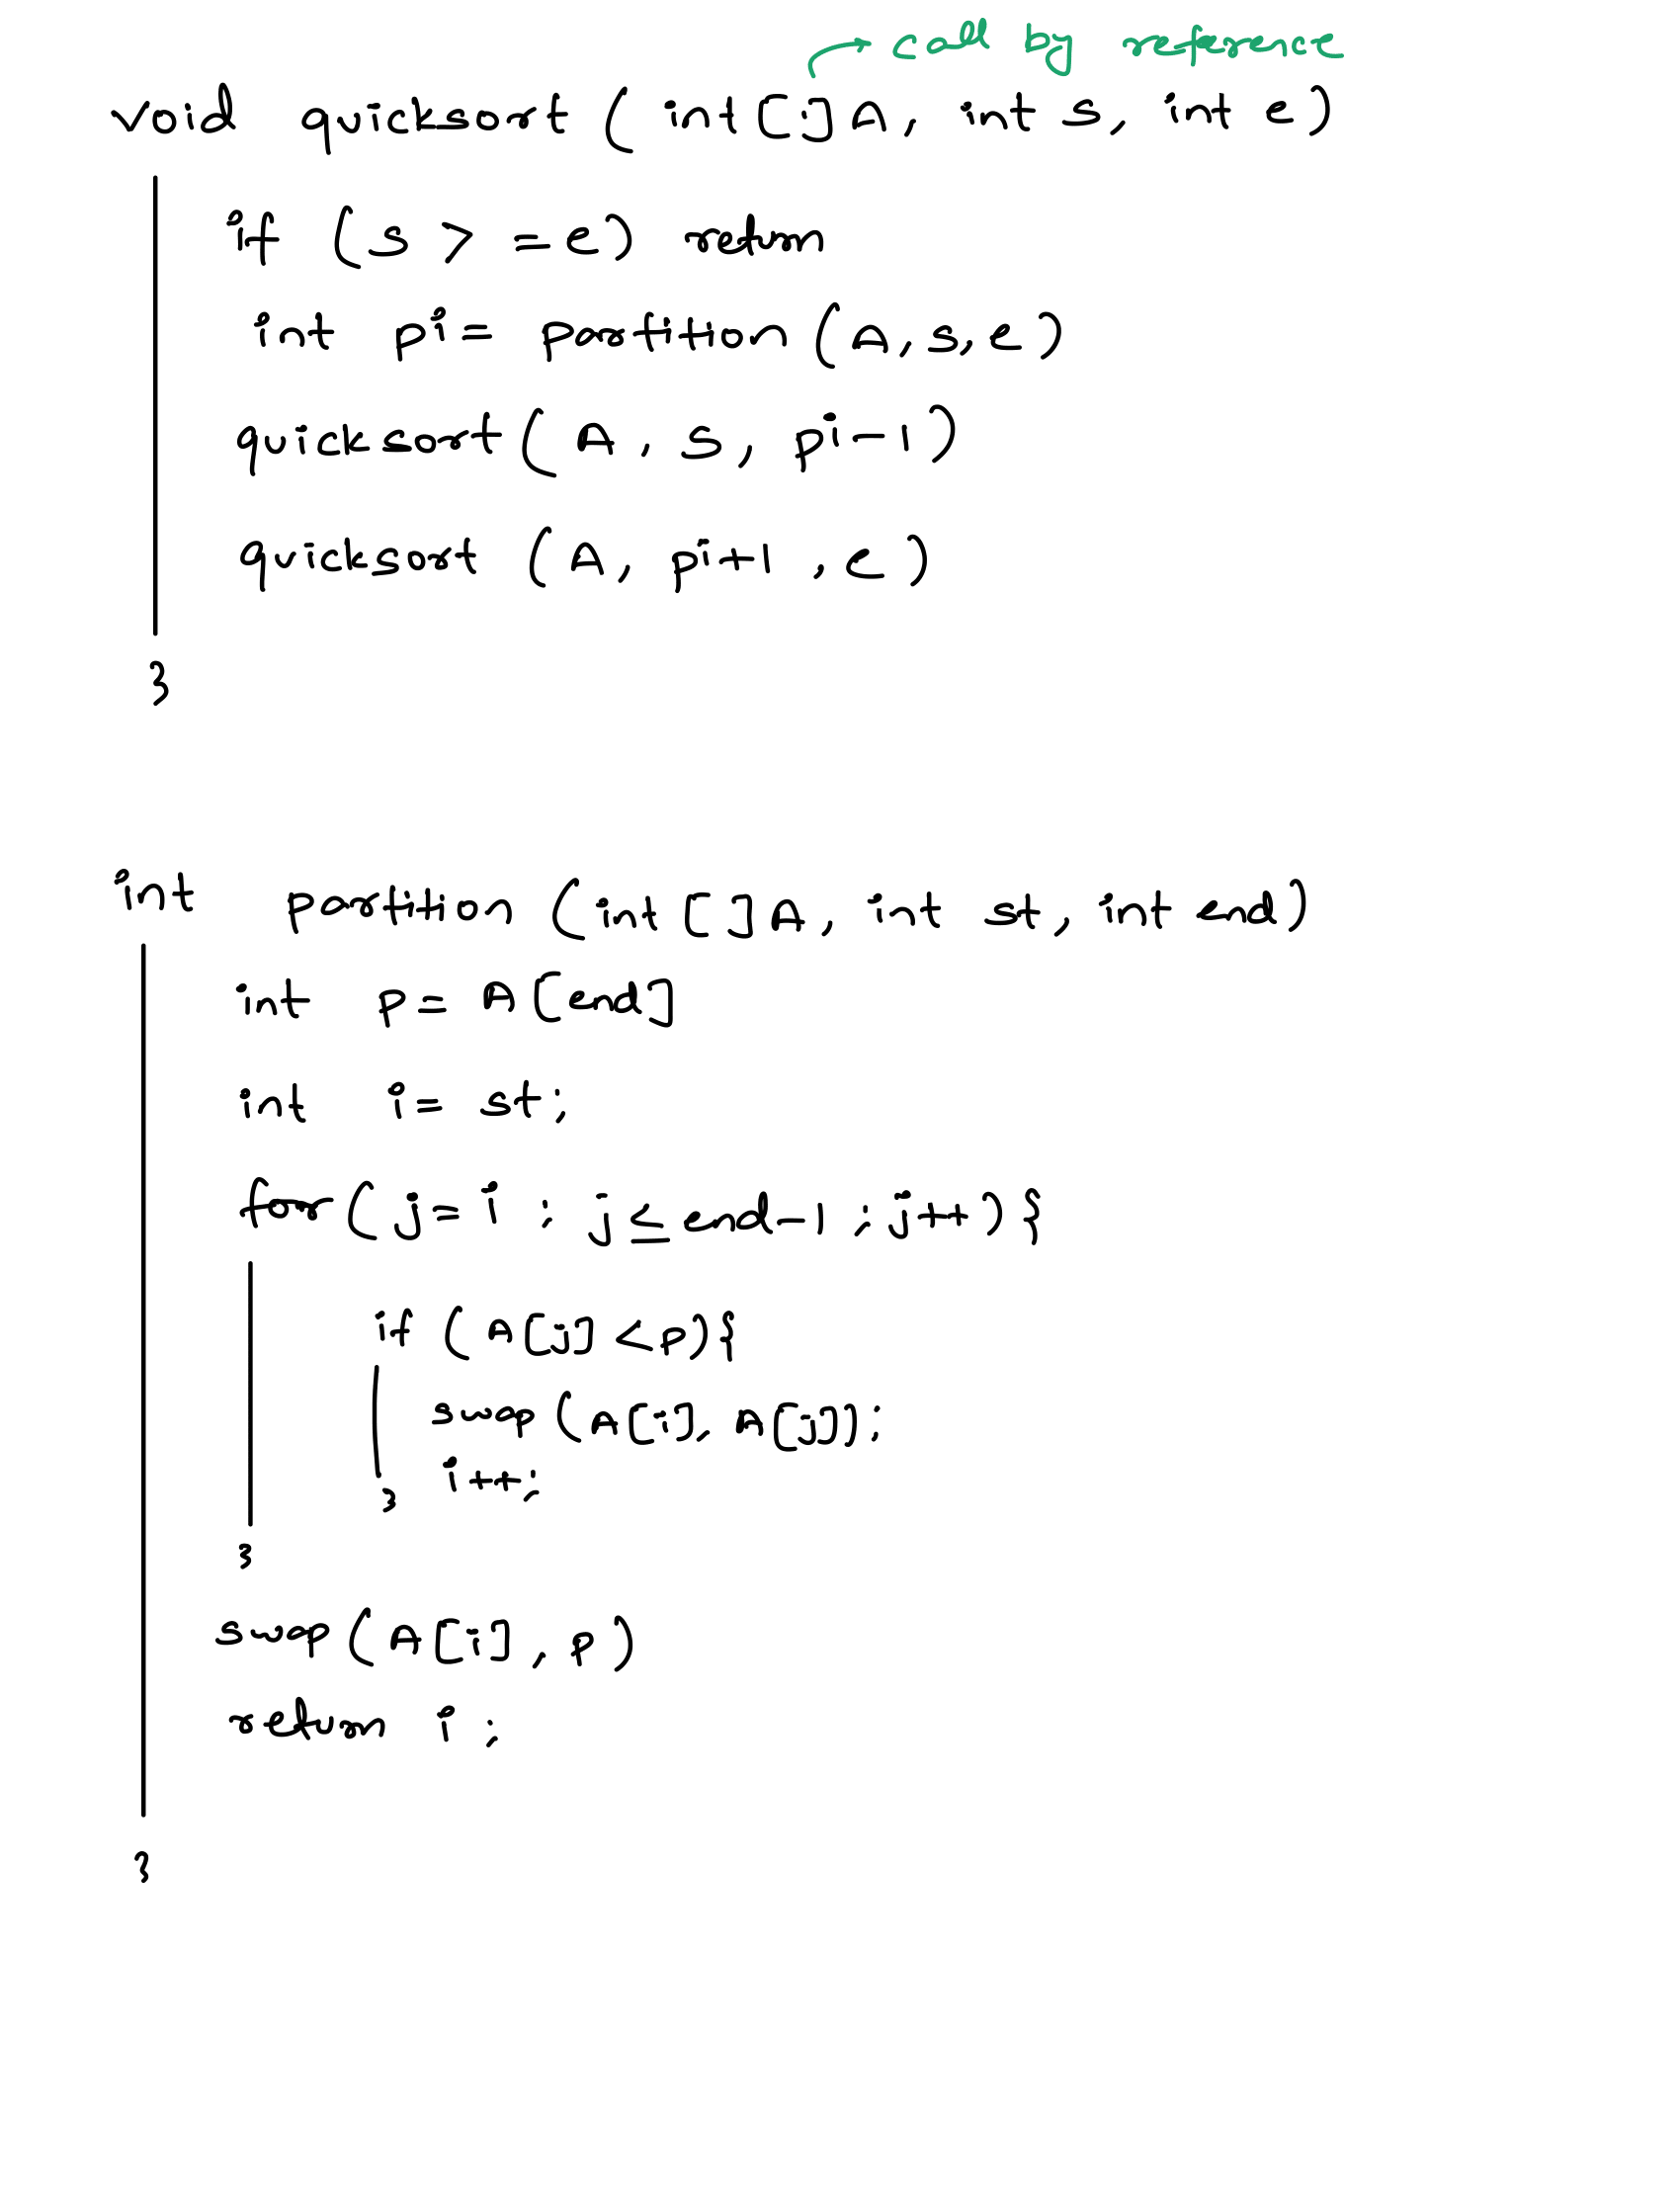 call by reference
void quicksort ( int[] A, int s, int e)
if (s > = e) return
int pi = partition (A, s, e)
quicksort ( A, s, pi-1)
quicksort (A, pi+1 , e)
}
int partition (int []A, int st, int end)
int p = A [end]
int i = st;
for ( j = i ; j ≤ end-1 ; j++) {
if ( A[j] < p) {
swap (A[i], A[j]);
i++;
}
}
swap ( A[i] , p )
return i ;
}